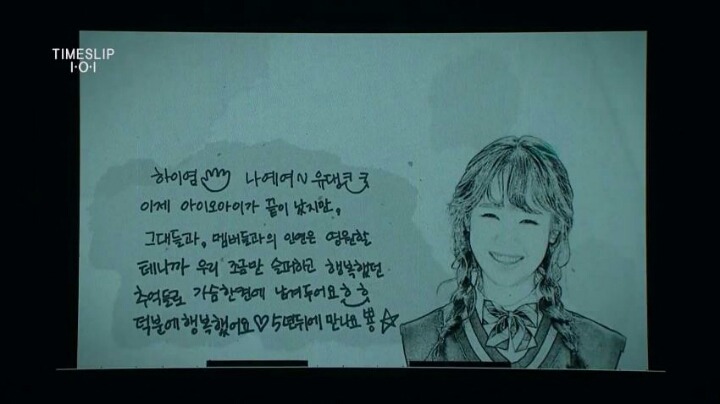 TIMESLIP
I·O·I
하이염 나예여~ 유댕ㅋㅋ
이제 아이오아이가 끝이 났지만,
그대들과, 멤버들과의 인연은 영원할
테니까 우리 조금만 슬퍼하고 행복했던
추억들로 가슴한편에 남겨두어요ㅎㅎ
덕분에 행복했어요♡ 5년뒤에 만나요 뿅☆